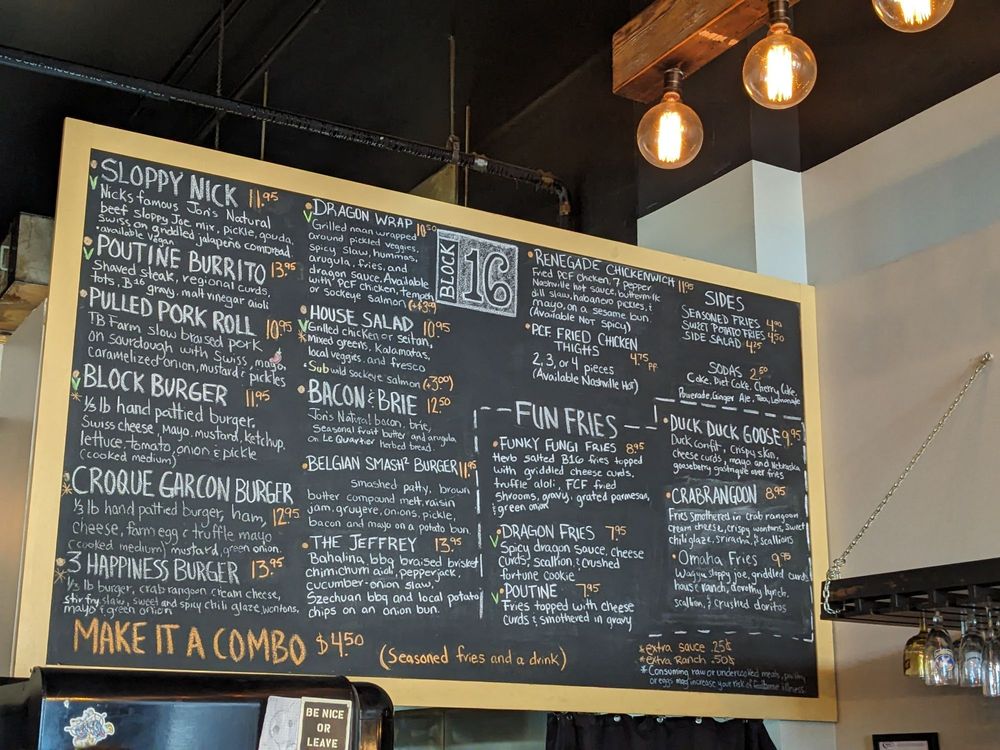 SLOPPY NICK 11.95
Nicks famous Jon's Natural
beef sloppy Joe mix, pickle, gouda,
Swiss on griddled jalapeño cornbread
*available vegan
POUTINE BURRITO 13.95
Shaved steak, regional curds,
tots, B16 gravy, malt vinegar aioli
PULLED PORK ROLL 10.95
TB Farm slow braised pork
on sourdough with Swiss, mayo,
Caramelized onion, mustard & pickles
BLOCK BURGER 11.95
1/3 lb hand pattied burger,
Swiss cheese, Mayo, mustard, ketchup,
lettuce, tomato, onion & pickle
(cooked medium)
CROQUE GARCON BURGER
1/3 lb hand pattied burger, ham, 12.95
cheese, farm egg & truffle mayo
(cooked medium) mustard, green onion
3 HAPPINESS BURGER 13.95
1/2 lb burger, crab rangoon cream cheese,
stir fry slaw, sweet and spicy chili glaze, wontons,
mayo & green onion
MAKE IT A COMBO $4.50
(Seasoned fries and a drink)
DRAGON WRAP 10.50
Grilled naan wrapped
around pickled veggies,
spicy slaw, hummas,
arugula, fries, and
dragon sauce. Available
with PCF chicken, tempeh
or sockeye salmon (+3.00)
HOUSE SALAD 10.95
Grilled chicken or seitan,
mixed greens, Kalamatas,
local veggies, and fresco
*Sub wild sockeye salmon (+3.00)
BACON & BRIE 12.50
Jon's Natural bacon, brie,
Seasonal fruit butter and arugula
on Le Quartier herbed bread.
BELGIAN SMASH BURGER 11.95
smashed patty, brown
butter compound melt, raisin
jam, gruyere, onions, pickle,
bacon and mayo on a potato bun
THE JEFFREY 13.95
bbq braised brisket
chimichurri aioli, pepperjack,
cucumber-onion slaw,
Szechuan bbq and local potato
chips on an onion bun.
BLOCK
16
RENEGADE CHICKENWICH 11.95
Fried PCF chicken, 7 pepper
Nashville hot sauce, buttermilk
dill slaw, habanero pickles, &
mayo, on a sesame bun
(Available Not Spicy)
PCF FRIED CHICKEN
THIGHS
2, 3, or 4 pieces 4.75 PP
(Available Nashville Hot)
SIDES
SEASONED FRIES 4.00
SWEET POTATO FRIES 4.50
SIDE SALAD 4.25
SODAS 2.50
Coke, Diet Coke, Cherry Coke,
Powerade, Ginger Ale, Tea, Lemonade
FUN FRIES
FUNKY FUNGI FRIES 8.95
Herb salted B16 fries topped
with griddled cheese curds,
truffle aioli, FCF fried
shrooms, gravy, grated parmesan,
& green onion
DRAGON FRIES 7.95
Spicy dragon sauce, cheese
curds, scallion & crushed
fortune cookie
POUTINE 7.95
Fries topped with cheese
curds & smothered in gravy
DUCK DUCK GOOSE 9.95
Duck confit, crispy skin,
cheese curds, mayo and Nebraska
gooseberry gastrique over fries
CRABRANGOON 8.95
Fries smothered in crab rangoon
cream cheese, crispy wontons, Sweet
chili glaze, sriracha, & scallions
Omaha Fries 9.75
Wagyu sloppy joe, griddled curds
house ranch, dorothy lynch,
scallion, & crushed doritos
*extra sauce .25¢
*extra Ranch .50¢
*Consuming raw or undercooked meats, poultry
or eggs may increase your risk of foodborne illness.
BE NICE
OR
LEAVE